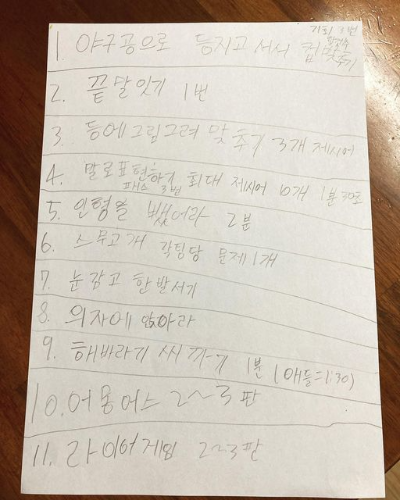 1 야구공으로 등지고 서서 컵 맞추기
기회 1번
2. 끝말잇기 1번
3. 등에 그림그려 맞추기 3개 제시어
4. 말로표현하기 최대 제시어 10개 1분 30초
패스 3번
5. 인형을 뺏어라 2분
6. 스무고개 각팀당 문제 1개
7. 눈감고 한발서기
8. 의자에 앉아라
9. 해바라기 씨 까기 1분 (애들=1:30)
10. 어몽어스 2~3판
11. 라이어게임 2~3판